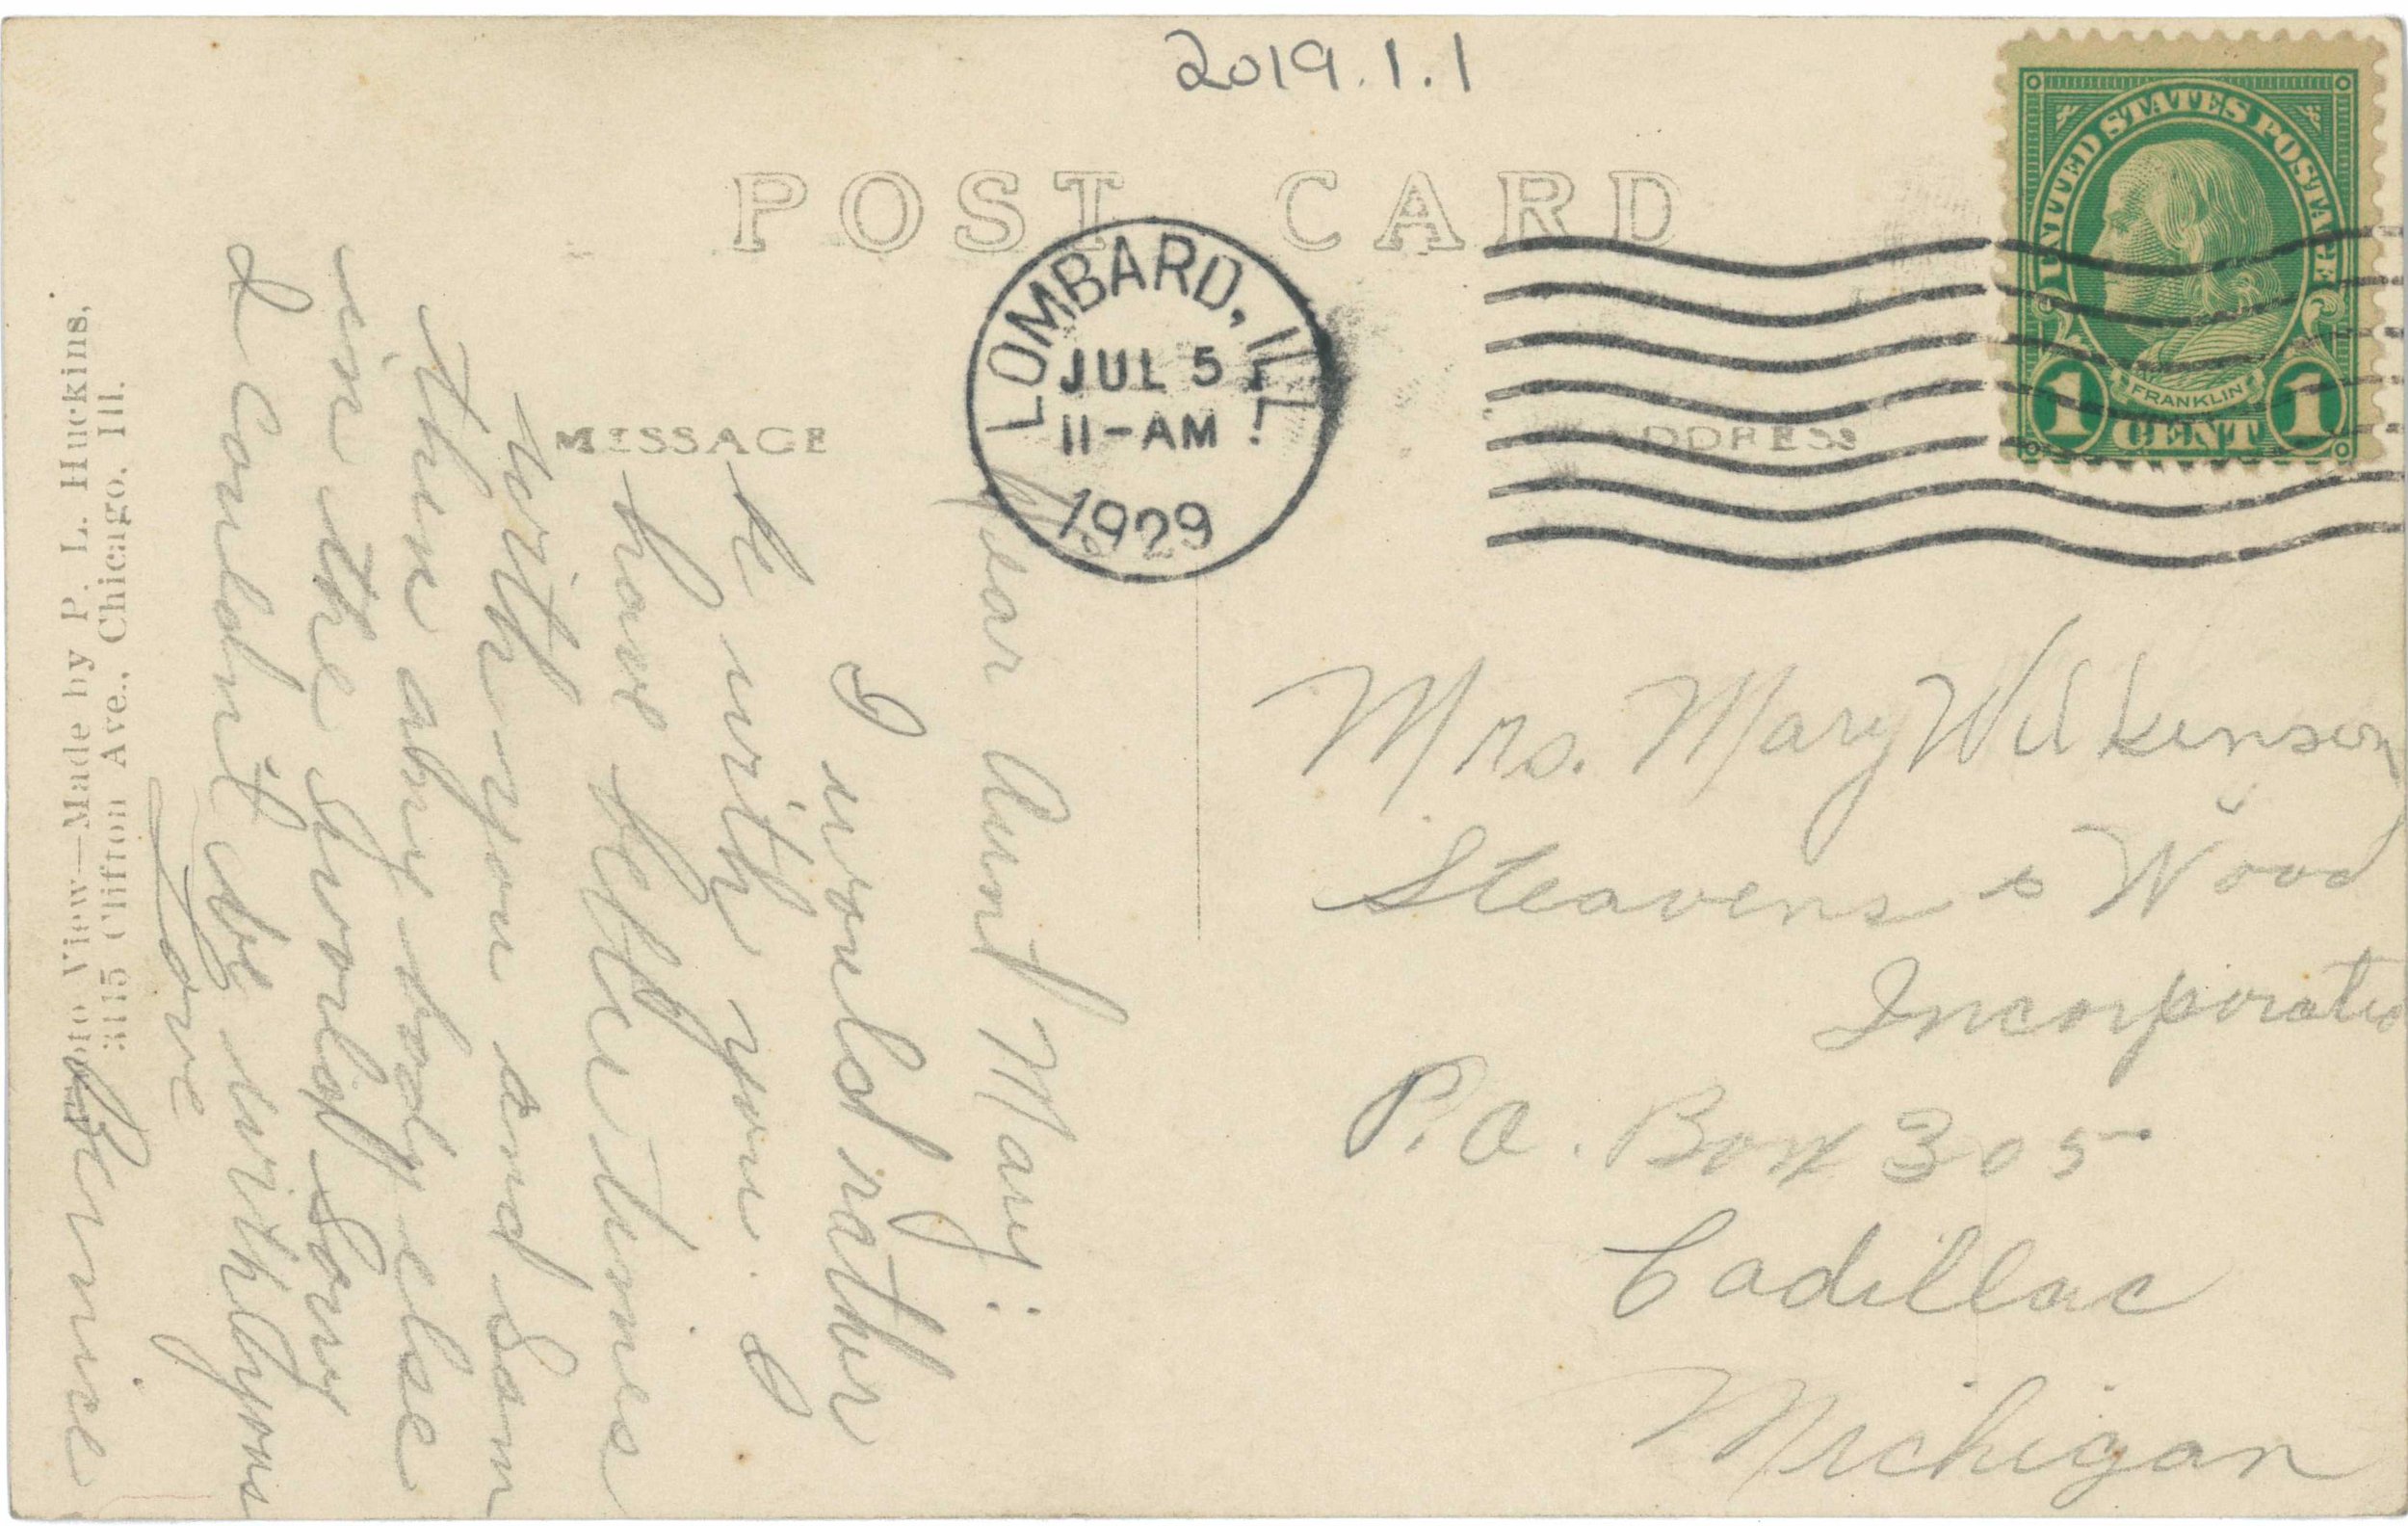 2019.1.1
POST CARD
UNITED STATES POSTAGE
FRANKLIN
1 CENT 1
LOMBARD, ILL.
JUL 5
11-AM
1929
MESSAGE
ADDRESS
Dear Aunt Mary:
I would rather
be with you. I
have better times
with you and Sam
then abny body else
in the world Sorry
I Couldn't be with you
Love
Bernice
Mrs. Mary Wilkinson
Steavens & Wood
Incorporated
P.O. Box 305
Cadillac
Michigan
Photo View—Made by P. L. Huckins,
3115 Clifton Ave., Chicago, Ill.